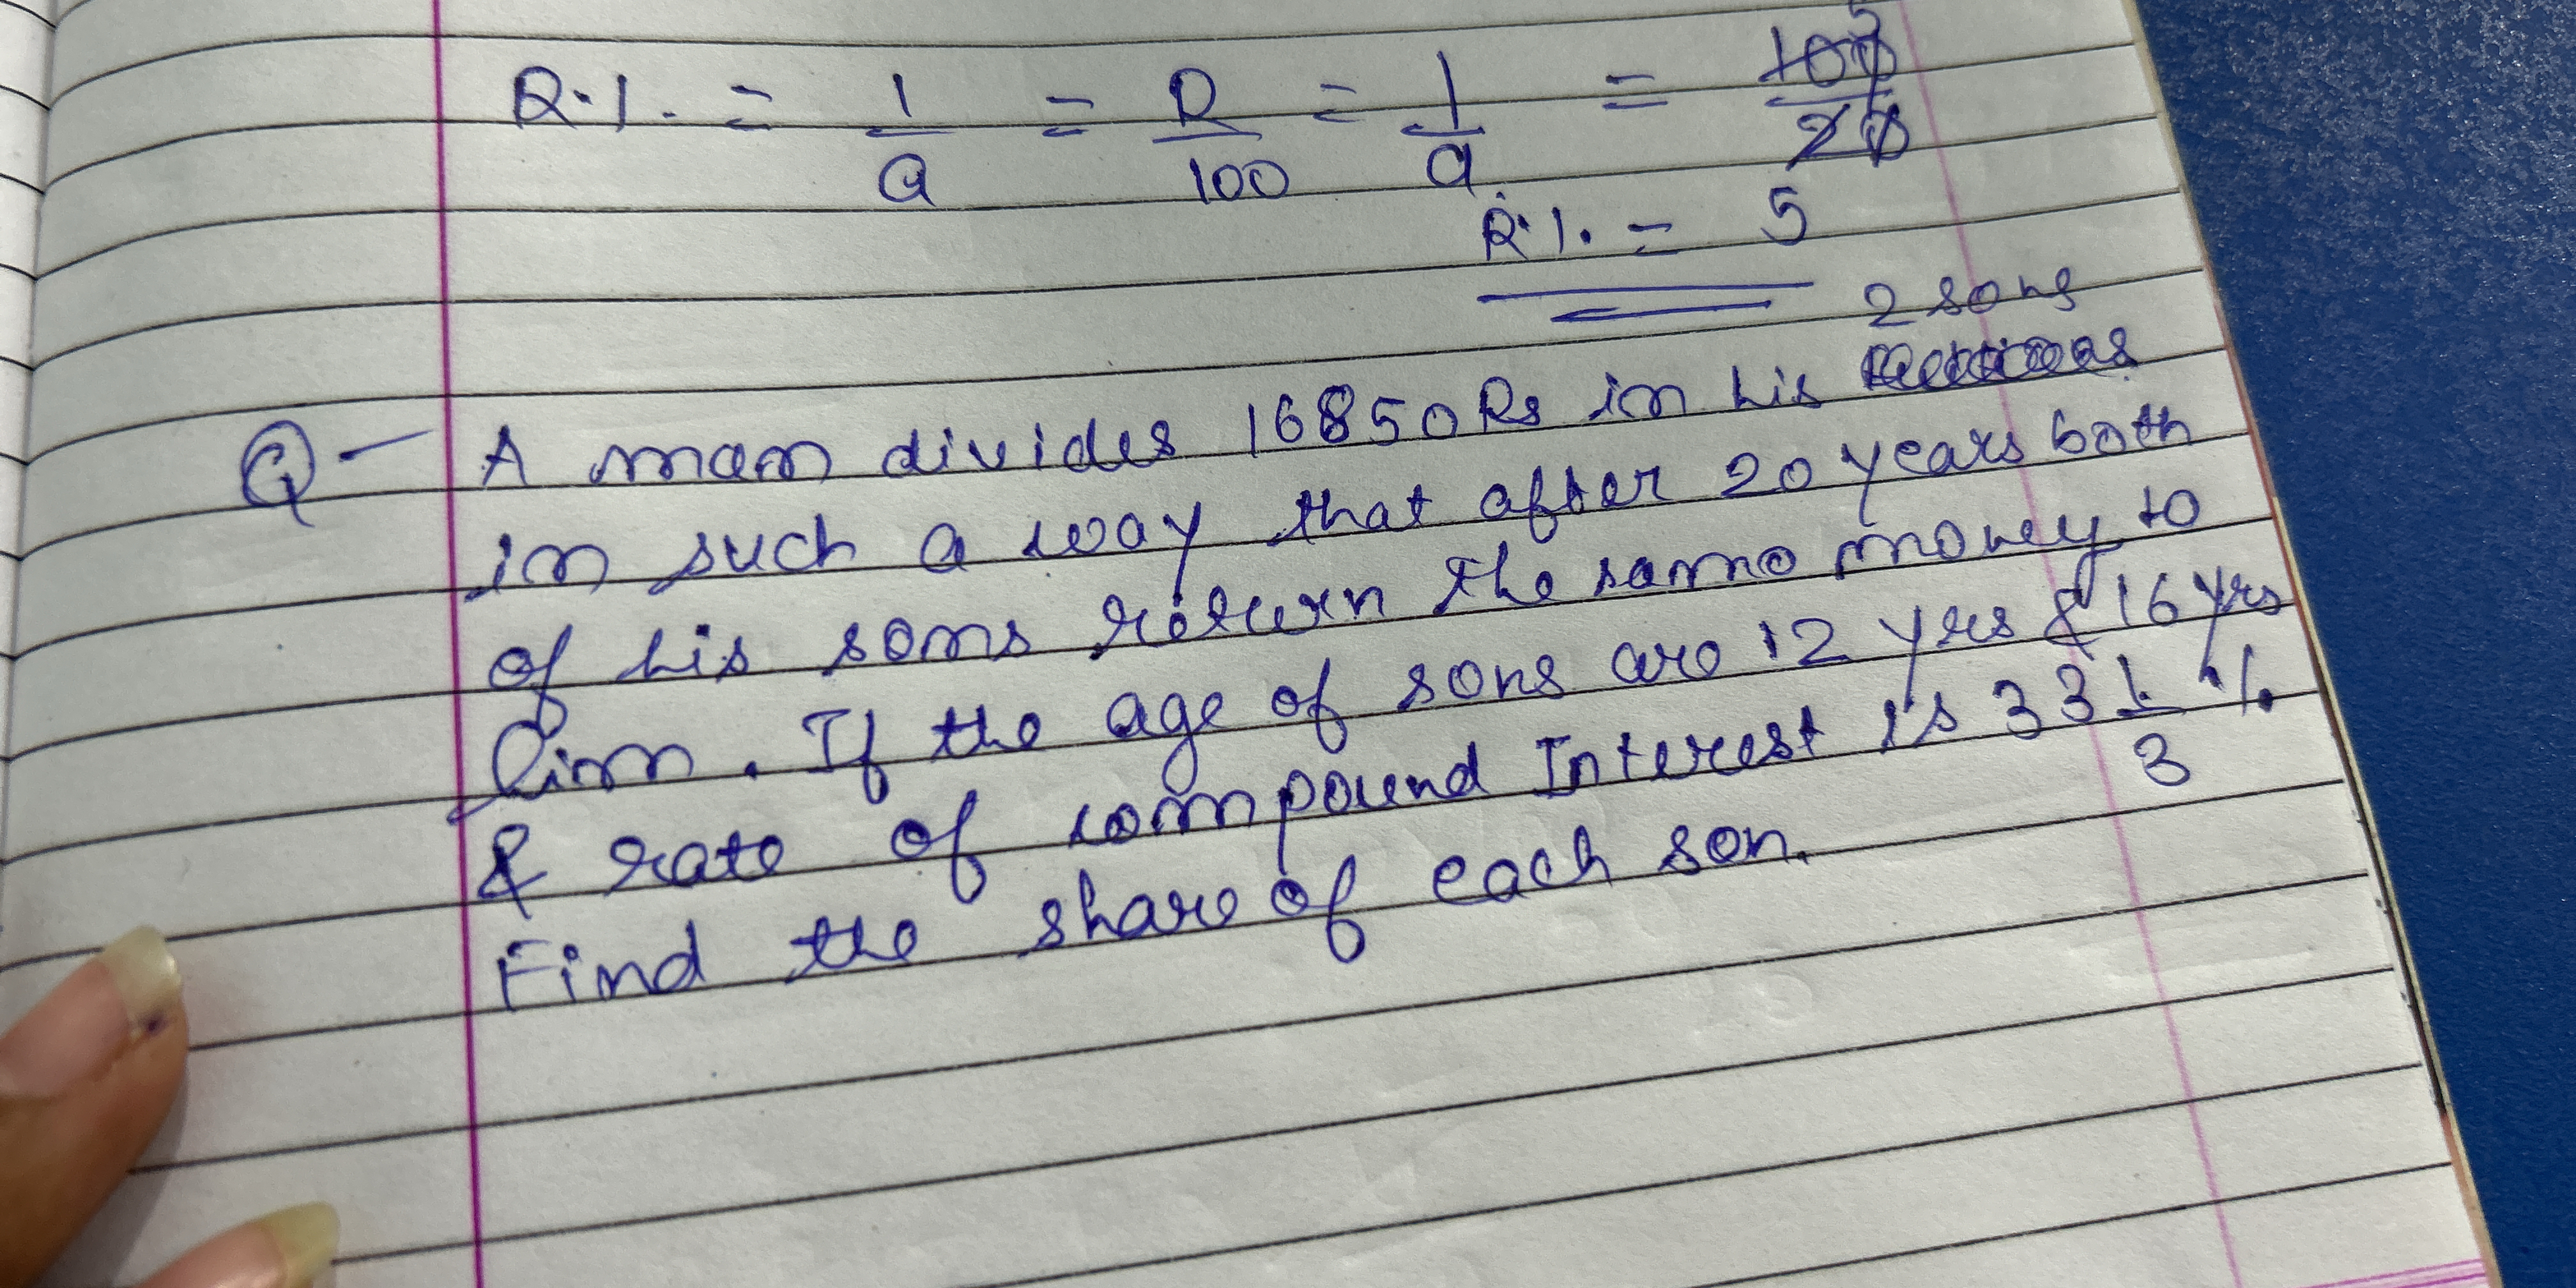 R·/. = 1/a = R/100 = 1/a = 100/20 5
R·/. = 5
2 sons
Q- A man divides 16850 Rs in his
in such a way that after 20 years both
of his sons return the same money to
him. If the age of sons are 12 yrs & 16 yrs
& rate of compound Interest is 33 1/3 %
Find the share of each son.